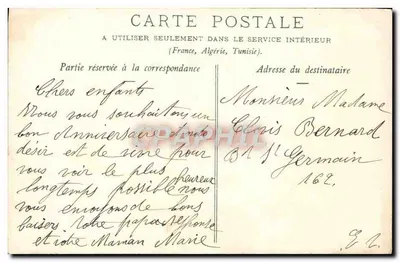 CARTE POSTALE
A UTILISER SEULEMENT DANS LE SERVICE INTÉRIEUR
(France, Algérie, Tunisie).
Partie réservée à la correspondance
Adresse du destinataire
Chers enfants
Nous vous souhaitons un
bon Anniversaire
désir est de vivre pour
vous voir le plus heureux
longtemps possible nous
vous envoyons de bons
baiser Votre papa
et votre Maman Marie
Monsieur Madame
Clovis Bernard
Bd St Germain
162.